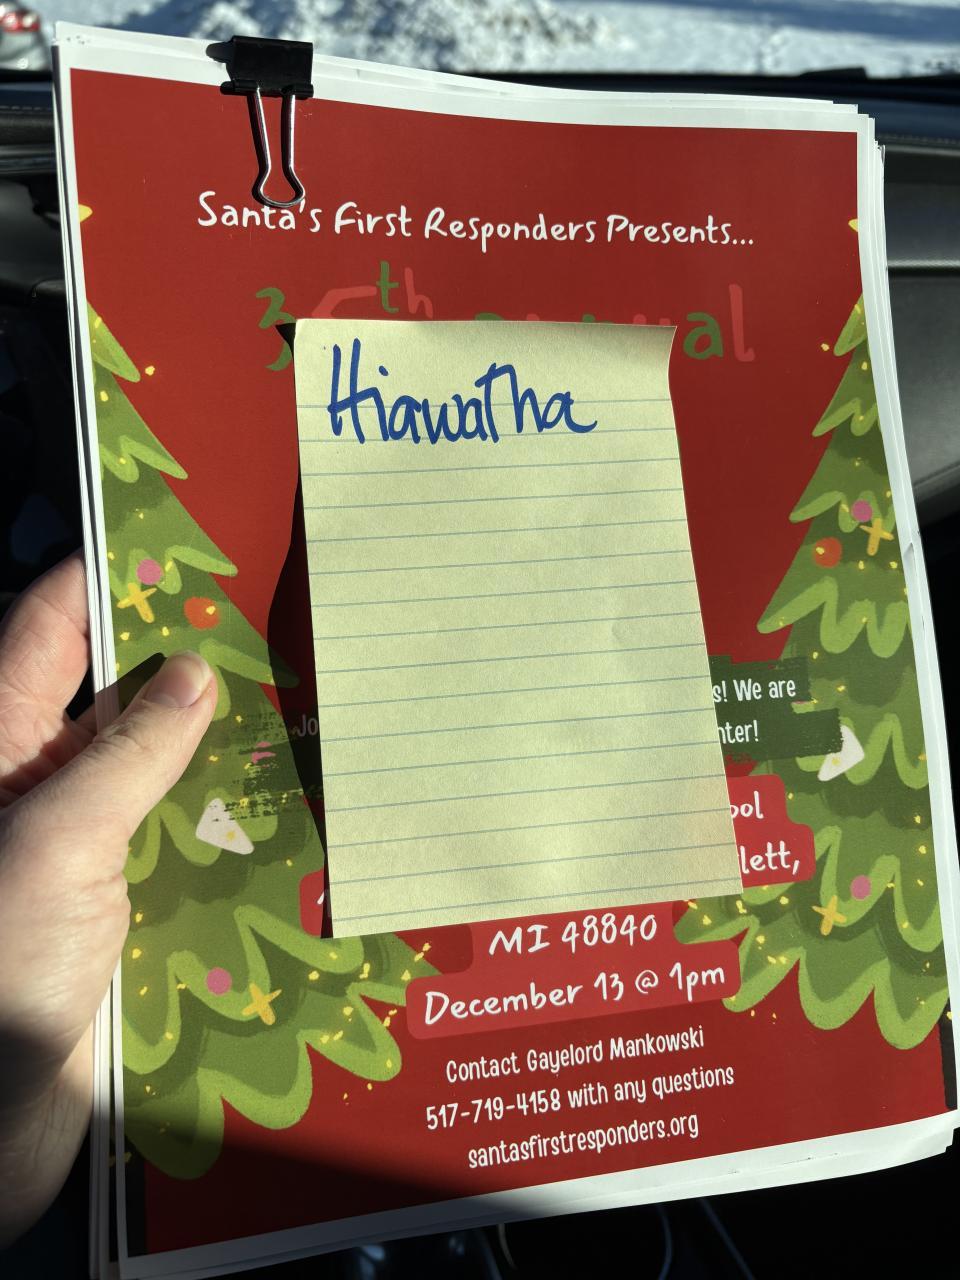 Santa's First Responders Presents...
th
al
Hiawatha
s! We are
nter!
ool
lett,
MI 48840
December 13 @ 1pm
Contact Gayelord Mankowski
517-719-4158 with any questions
santasfirstresponders.org